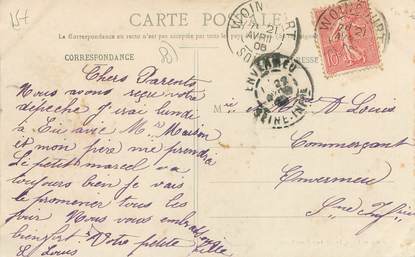 15f
CARTE POSTALE
La Correspondance au recto n'est pas acceptée par tous les pays
CORRESPONDANCE
Chers Parents
Nous avons reçu votre
dépêche J'irai lundi
à Eu avec Mr
et mon père me prendra
Le petit marcel va
toujours bien Je vais
le promener tous les
jour Nous vous embrassons
bien fort Votre petite fille
L Louis
21
AVRIL
08
ENVERMEU
22
SEINE-INFRE
10
A Louis
Commerçant
Envermeu
Sne Infre